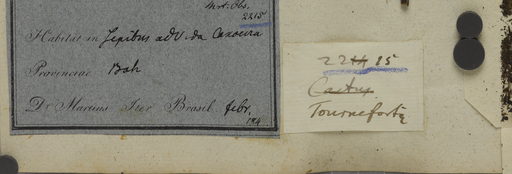 Mrt. Obs.
2215
Habitat in Sepibus ad V. da Caxoeira
Provinciae Bah
Dr Martius Iter Brasil. febr.
184
2211 15
Cactus
Tournefortia